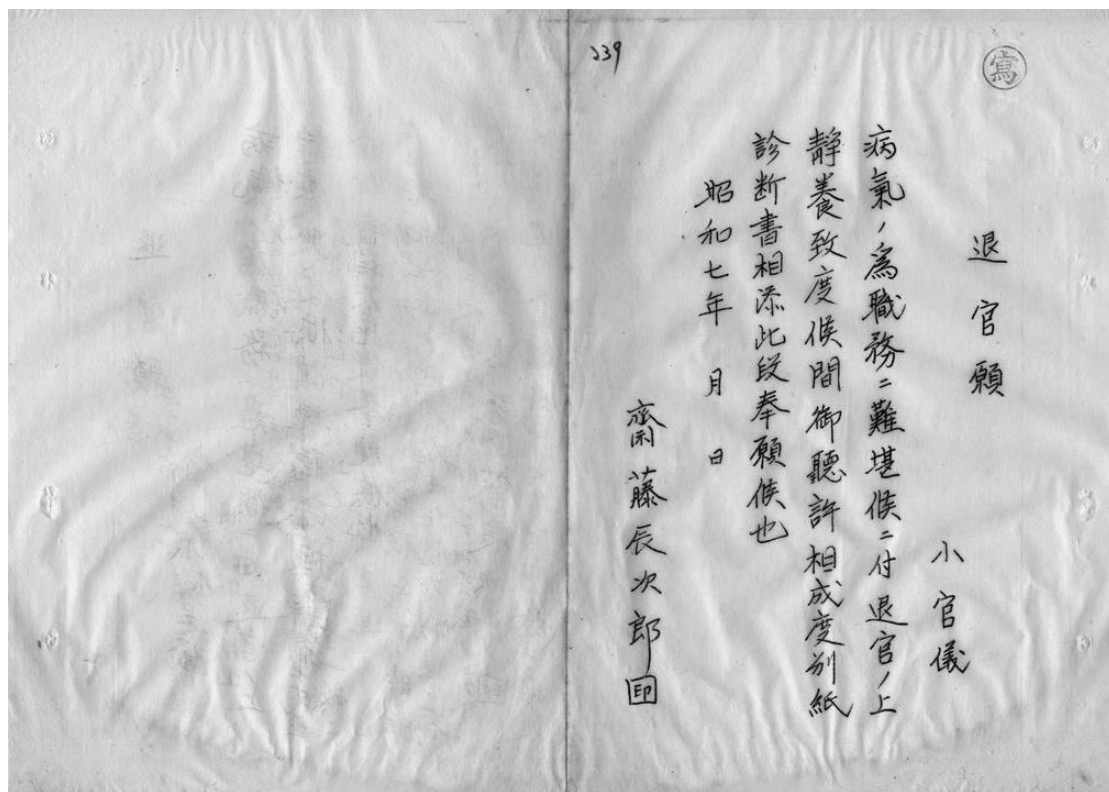 寫
退官願
小官儀
病氣ノ為職務ニ難堪候ニ付退官ノ上
靜養致度候間御聽許相成度別紙
診断書相添此段奉願候也
昭和七年 月 日
齋藤辰次郎 印
239